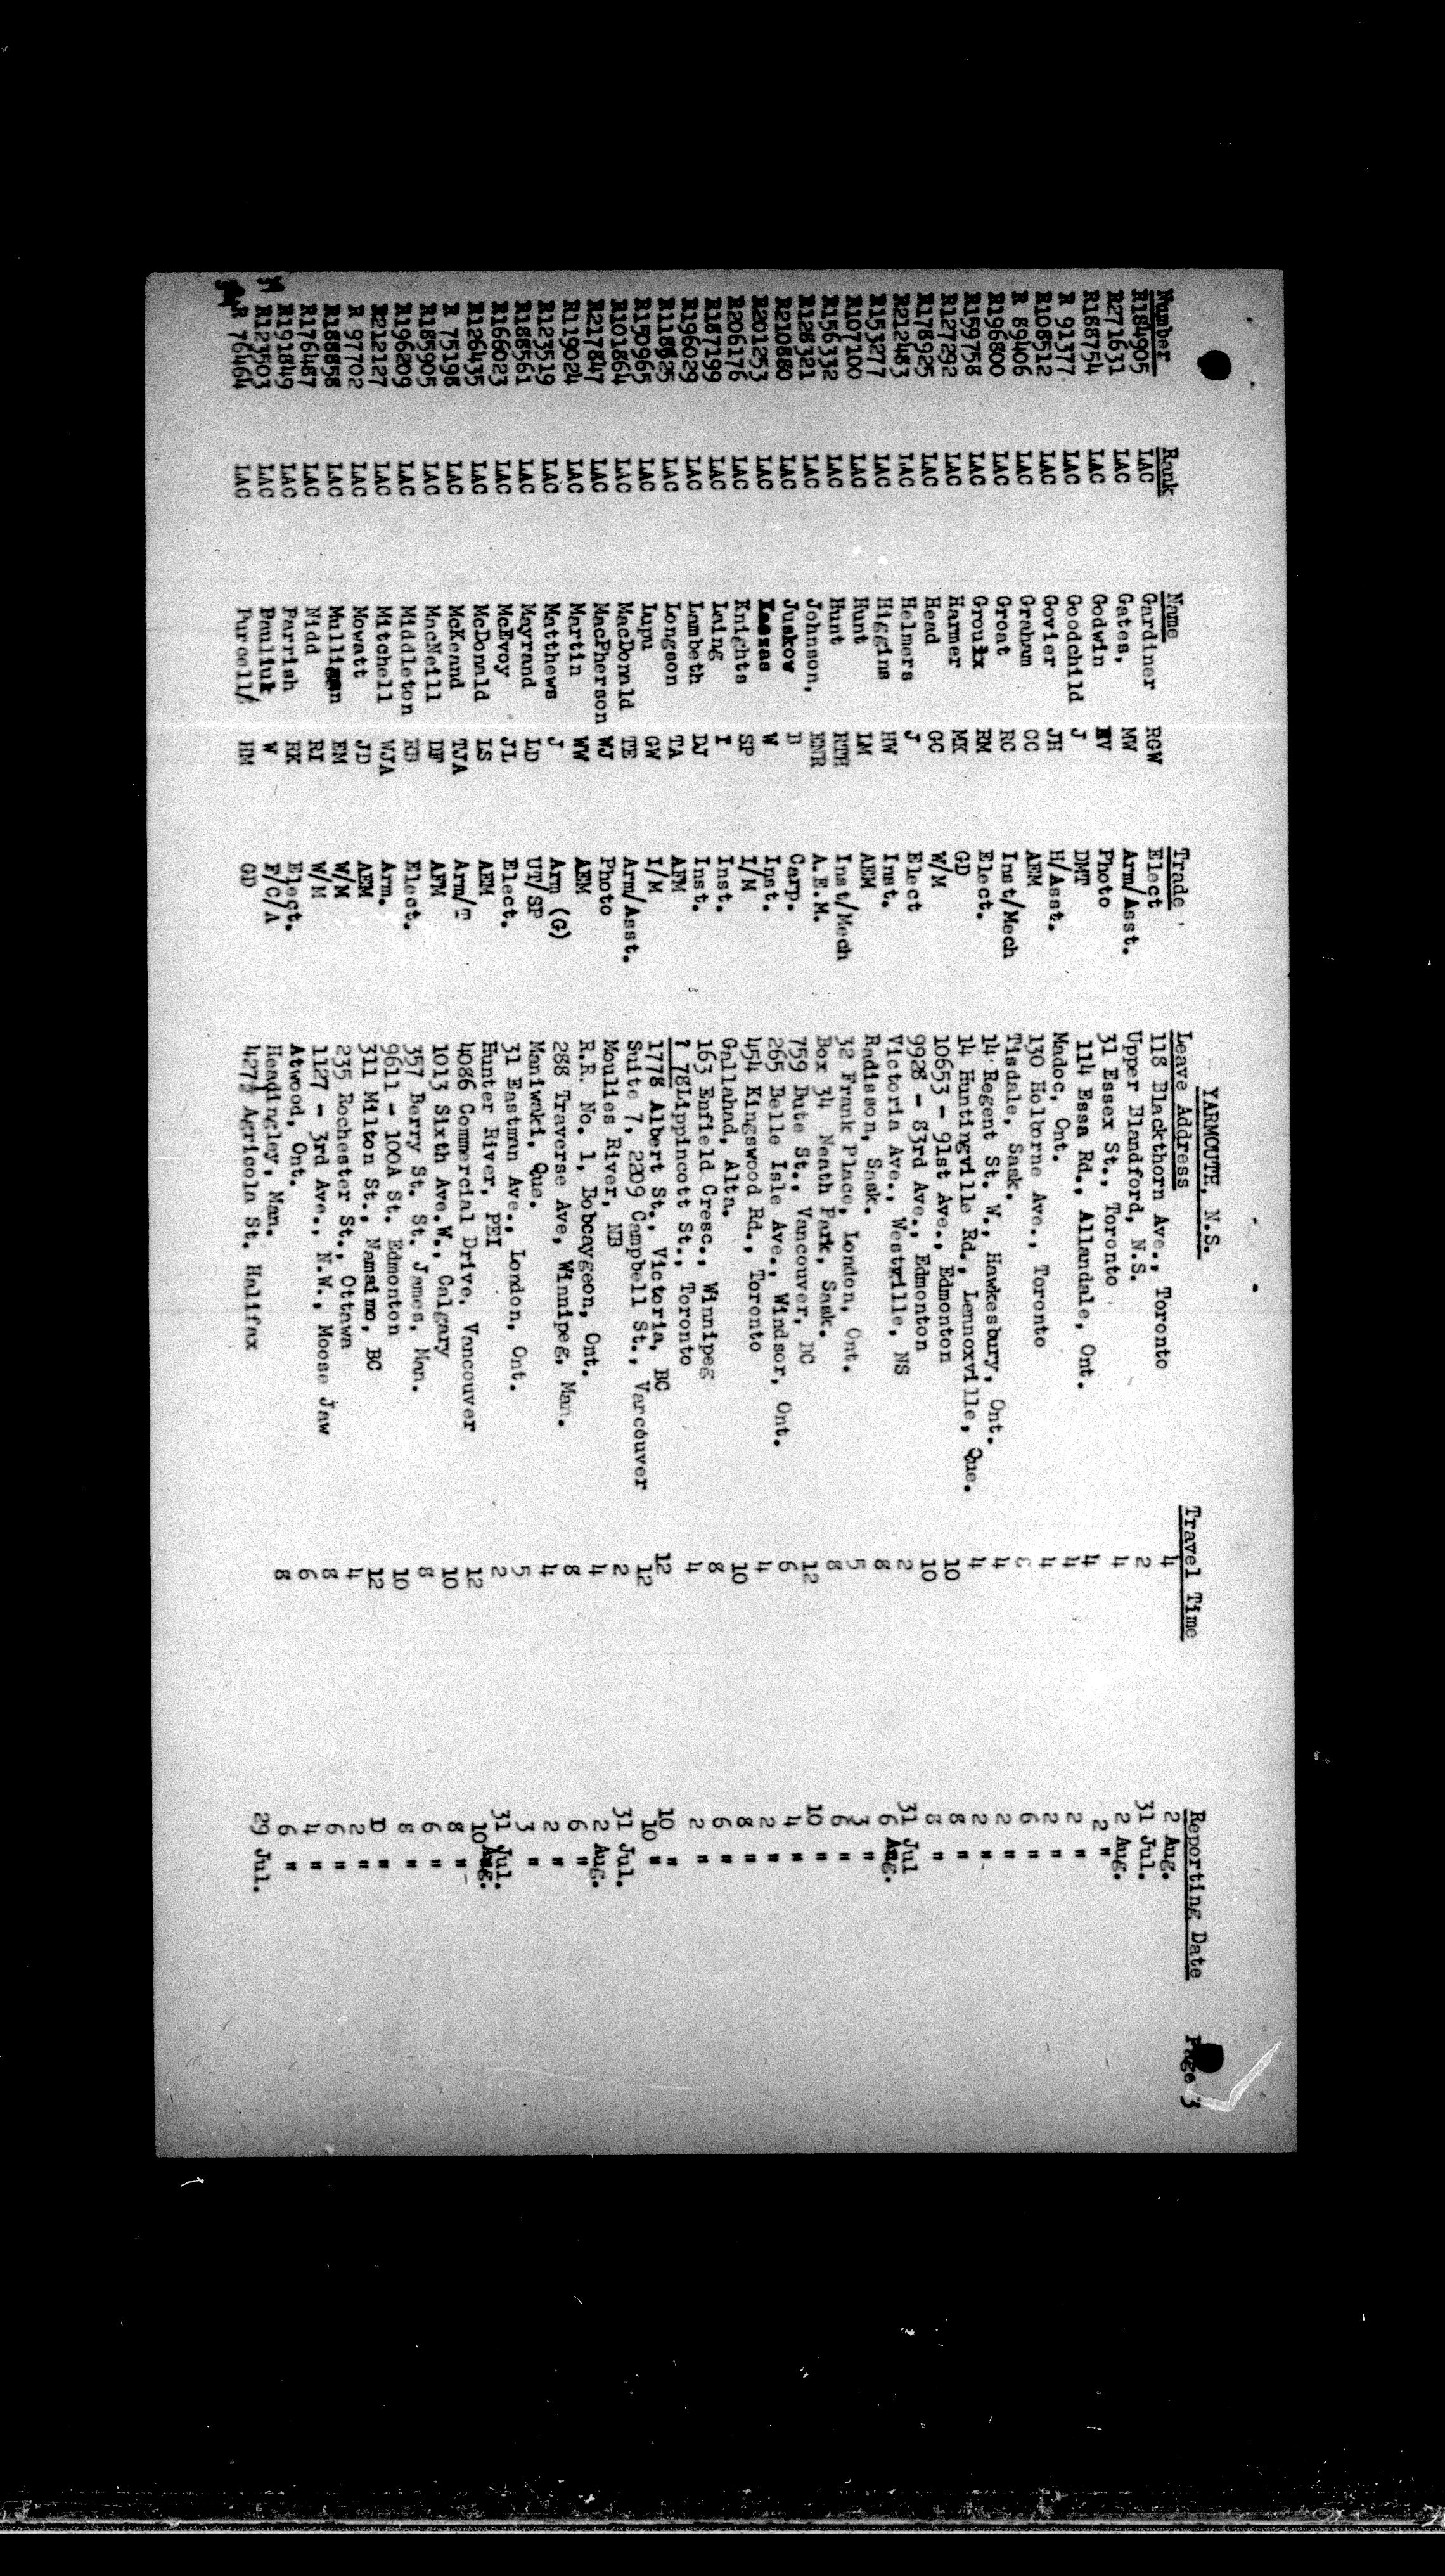 YARMOUTH, N.S. Page 3
Number Rank Name Trade Leave Address Travel Time Reporting Date
R184905 LAC Gardiner RGW Elect 118 Blackthorn Ave., Toronto 4 2 Aug.
R271631 LAC Gates, MW Arm/Asst. Upper Blandford, N.S. 2 31 Jul.
R188754 LAC Godwin EV Photo 31 Essex St., Toronto 4 2 Aug.
R 91377 LAC Goodchild J DMT 114 Essa Rd., Allandale, Ont. 4 2 "
R108512 LAC Govier JH H/Asst. Madoc, Ont. 4 2 "
R 89406 LAC Graham CC AEM 130 Holborne Ave., Toronto 4 2 "
R196800 LAC Groat RC Inst/Mech Tisdale, Sask. 6 "
R159758 LAC Groulx RM Elect. 14 Regent St. W., Hawkesbury, Ont. 4 2 "
R127292 LAC Harmer MK GD 14 Huntingville Rd., Lennoxville, Que. 4 2 "
R178925 LAC Head GC W/M 10653 - 91st Ave., Edmonton 10 8 "
R212483 LAC Helmers J Elect 9928 - 83rd Ave., Edmonton 10 8 "
R153277 LAC Higgins HW Inst. Victoria Ave., Westville, NS 2 31 Jul
R107100 LAC Hunt LM AEM Radisson, Sask. 8 6 Aug.
R156332 LAC Hunt RTH Inst/Mech 32 Frank Place, London, Ont. 5 3 "
R128321 LAC Johnson, ENR A.E.M. Box 34 Neath Park, Sask. 8 6 "
R210880 LAC Juskow D Carp. 759 Bute St., Vancouver, BC 12 10 "
R201253 LAC Kaszas W Inst. 265 Belle Isle Ave., Windsor, Ont. 6 4 "
R206176 LAC Knights SP I/M 454 Kingswood Rd., Toronto 4 2 "
R187199 LAC Laing I Inst. Gallahad, Alta. 10 8 "
R196029 LAC Lambeth DJ Inst. 163 Enfield Cresc., Winnipeg 8 6 "
R118625 LAC Longson TA AFM ? 78Lippincott St., Toronto 4 2 "
R150965 LAC Lupu GW I/M 1778 Albert St., Victoria, BC 12 10 "
R101864 LAC MacDonald TE Arm/Asst. Suite 7, 2209 Campbell St., Vancouver 12 10 "
R217847 LAC MacPherson WJ Photo Moulies River, NB 2 31 Jul.
R119024 LAC Martin WW AEM R.R. No. 1, Bobcaygeon, Ont. 4 2 Aug.
R123519 LAC Matthews J Arm (G) 288 Traverse Ave, Winnipeg, Man. 8 6 "
R188561 LAC Mayrand LD UT/SP Maniwaki, Que. 4 2 "
R166023 LAC McEvoy JL Elect. 31 Eastman Ave., London, Ont. 5 3 "
R126435 LAC McDonald LS AEM Hunter River, PEI 2 31 Jul.
R 75198 LAC McKeand TJA Arm/T 4086 Commercial Drive, Vancouver 12 10 Aug.
R185905 LAC MacNeill DF AFM 1013 Sixth Ave.W., Calgary 10 8 "
R196209 LAC Middleton RB Elect. 357 Berry St. St. James, Man. 8 6 "
R212127 LAC Mitchell WJA Arm. 9611 - 100A St. Edmonton 10 8 "
R 97702 LAC Mowatt JD AEM 311 Milton St., Namaimo, BC 12 D "
R188858 LAC Mulligan EM W/M 235 Rochester St., Ottawa 4 2 "
R176487 LAC Nidd RI W/M 1127 - 3rd Ave., N.W., Moose Jaw 8 6 "
R191849 LAC Parrish RK Elect. Atwood, Ont. 6 4 "
R123503 LAC Pauliuk W F/C/A Headingley, Man. 8 6 "
R 76464 LAC Purcell/ HM GD 427½ Agricola St. Halifax 29 Jul.